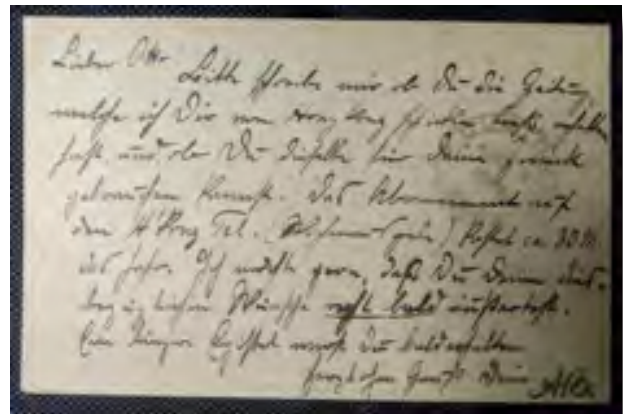 Lieber Otto
Bitte schreibe mir ob Du die Zeitung,
welche ich Dir von Hong Kong schicken ließ, erhalten
hast, und ob Du dieselbe für Deine Zwecke
gebrauchen kannst. Das Abonnement auf
den H'Kong Tel. kostet ca. 30 M.
das Jahr. Ich möchte gern, daß Du Deine dies-
bezüglichen Wünsche recht bald äußertest.
Eine längere Epistel wirst Du bald erhalten
herzlichen Gruß Dein